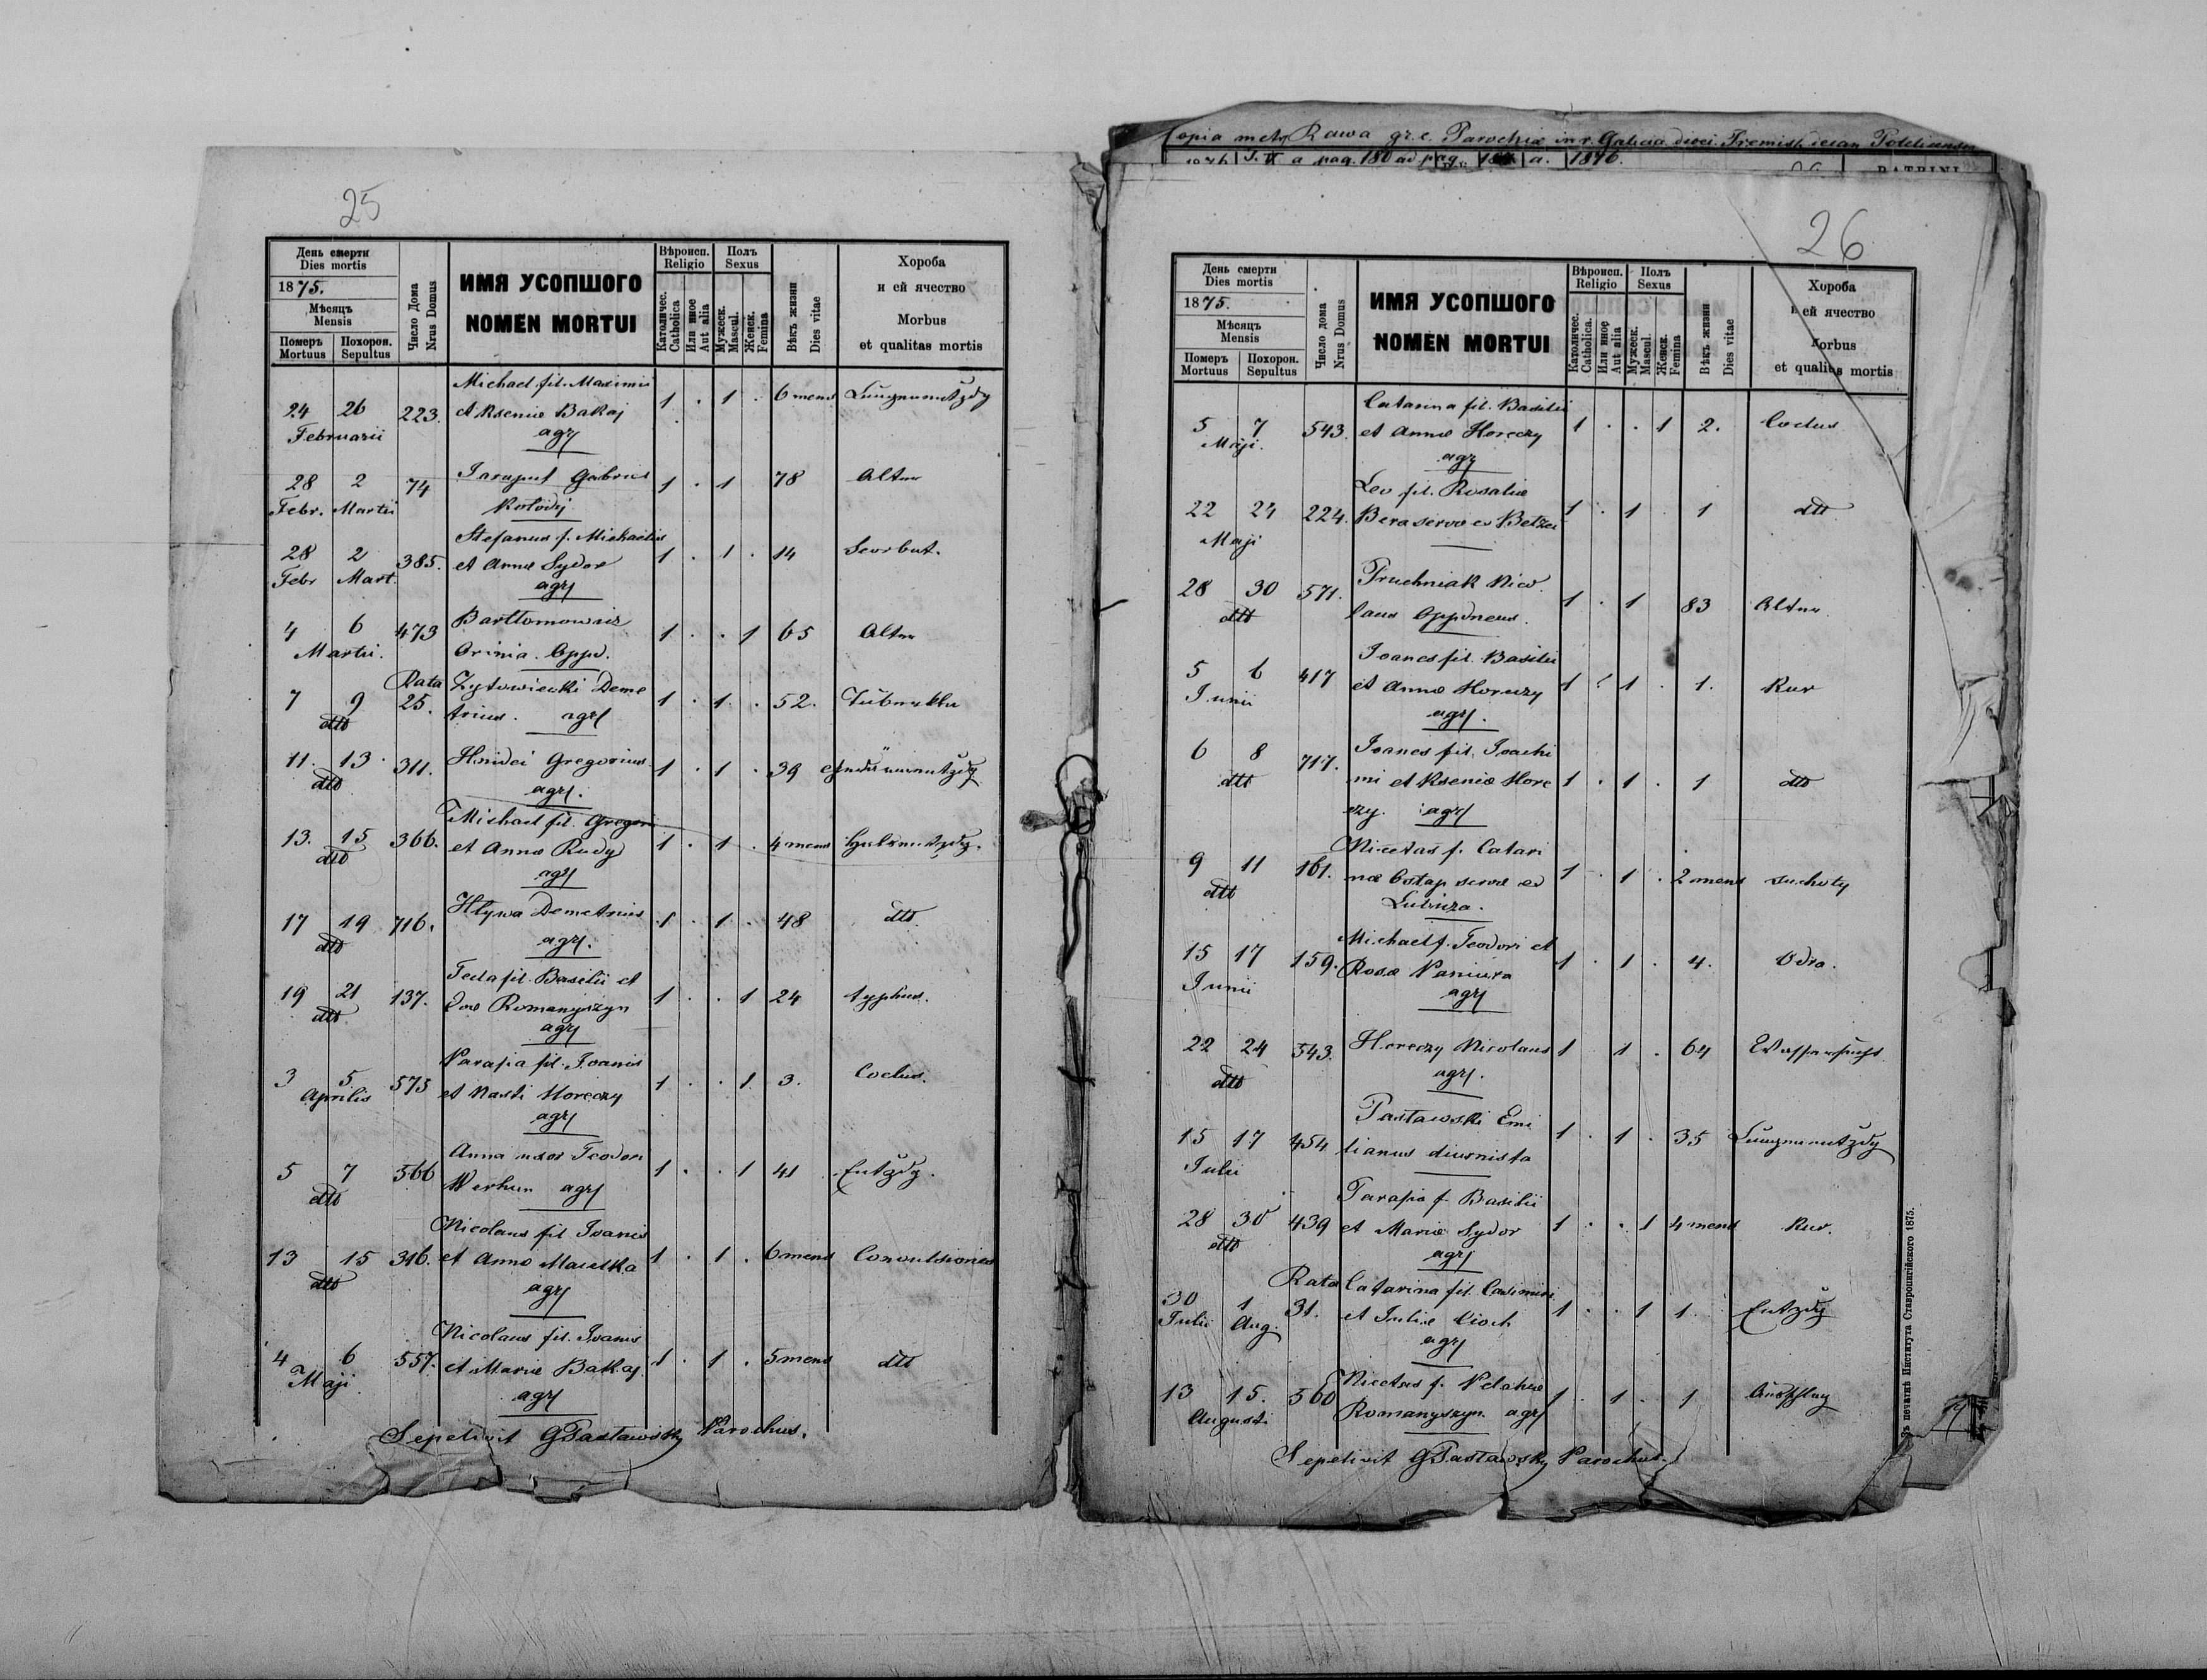 25
День смерти
Dies mortis
1875.
Мѣсяцъ
Mensis
Померъ Mortuus
Похорон. Sepultus
Число Дома
Nrus Domus
ИМЯ УСОПШОГО
NOMEN MORTUI
Вѣроисп.
Religio
Католичес.
Catholica
Или иное
Aut alia
Полъ
Sexus
Мужеск.
Mascul.
Женск.
Femina
Вѣкъ жизни
Dies vitae
Хороба
и ей ячество
Morbus
et qualitas mortis
Michael fil. Maximi
24 26 223. et Kseniæ Bakaj 1 . 1 . 6 mens
Februarii agr
Gabriel
28 2 74 1 . 1 78 Alter
Febr. Martii Kołodij
Stefanus f. Michaelis
28 2 385. et Annæ Sydor 1 . 1 . 14 Scorbut.
Febr Mart. agr
Bartłomowicz
4 6 473 1 . . 1 65 Alter
Martii. Orinia. Oppd.
Rata Zytowiecki Deme
7 9 25. trius. agr 1 . 1 . 52.
dtto
11. 13. 311. Hnidei Gregorius 1 . 1 . 39
dtto agr.
Michael fil. Gregorii
13. 15 366. et Annæ Rudy 1 . 1 . 4 mens
dtto agr
17 19 716. Hływa Demetrius 1 . 1 . 48 dtto
dtto agr.
Tecla fil. Basilii et
19 21 137. Evæ Romanyszyn 1 . . 1 24 typhus.
dtto agr
Parasia fil. Joanis
3 5 575 et Nasti Horeczy 1 . . 1 3. Coclus.
Aprilis agr
Anna uxor Teodori
5 7 366 Werhun agr 1 . . 1 41 Entzdg.
dtto
Nicolaus fil Joanis
13 15 316. et Annæ 1 . 1 . 6 mens Convulsiones
dtto agr
Nicolaus fil. Joanis
4 6 557. et Mariæ Bakaj 1 . 1 . 5 mens dtto
Maji. agr
Sepelivit GPasławsky Parochus.
Copia metr. Rawa gr. c. Parochiæ in r. Galicia dioci. Premisl. decan
T. IX a pag. 180 ad pag. a. 1876.
PATRINI
26
День смерти
Dies mortis
1875.
Мѣсяцъ
Mensis
Померъ Mortuus
Похорон. Sepultus
Число дома
Nrus Domus
ИМЯ УСОПШОГО
NOMEN MORTUI
Вѣроисп.
Religio
Католичес.
Catholica.
Или иное
Aut alia
Полъ
Sexus
Мужеск.
Mascul.
Женск.
Femina
Вѣкъ жизни
Dies vitae
Хороба
и ей ячество
Morbus
et qualitas mortis
Catarina fil. Basilii
5 7 543. et Annæ Horeczy 1 . . 1 2. Coclus
Maji. agr
Leo fil. Rosaliæ
22 24 224. 1 . 1 . 1 dtto
Maji
Pruchniak Nico
28 30 571. laus Oppdneus. 1 . 1 83 Alter
dtto
Joanes fil. Basilii
5 6 417 et Annæ Horeczy 1 . 1 . 1. Kur
Junii agr.
Joanes fil. Joachi
6 8 717. mi et Kseniæ Hore 1 . 1 . 1 dtto
dtto czy. agr
Nicetas f. Catari
9 11 161. næ Ostap servæ ex 1 . 1 . 2 mens suchoty
dtto
Michael f. Teodori et
15 17 159. Rosæ Paniura 1 . 1 . 4. Odra.
Junii agr
22 24 343. Horeczy Nicolaus 1 1 . 64 Wassersucht
dtto agr.
Pasławski Emi
15 17 454 lianus diurnista 1 . 1 . 35
Julii
Parasia f. Basilii
28 30 439 et Mariæ Sydor 1 . . 1 4 mens Kur.
dtto agr
Rata Catarina fil. Casimiri
30 1 31. et Juliæ Cioch 1 . . 1 1. Entzdg
Julii Aug. agr
Nicetas f. Pelahiæ
13 15. 360 Romanyszyn agr 1 . 1 . 1 Ausschlag
Augusti
Sepelivit GPasławsky Parochus.
Зъ печатнѣ Института Ставропигійского 1875.